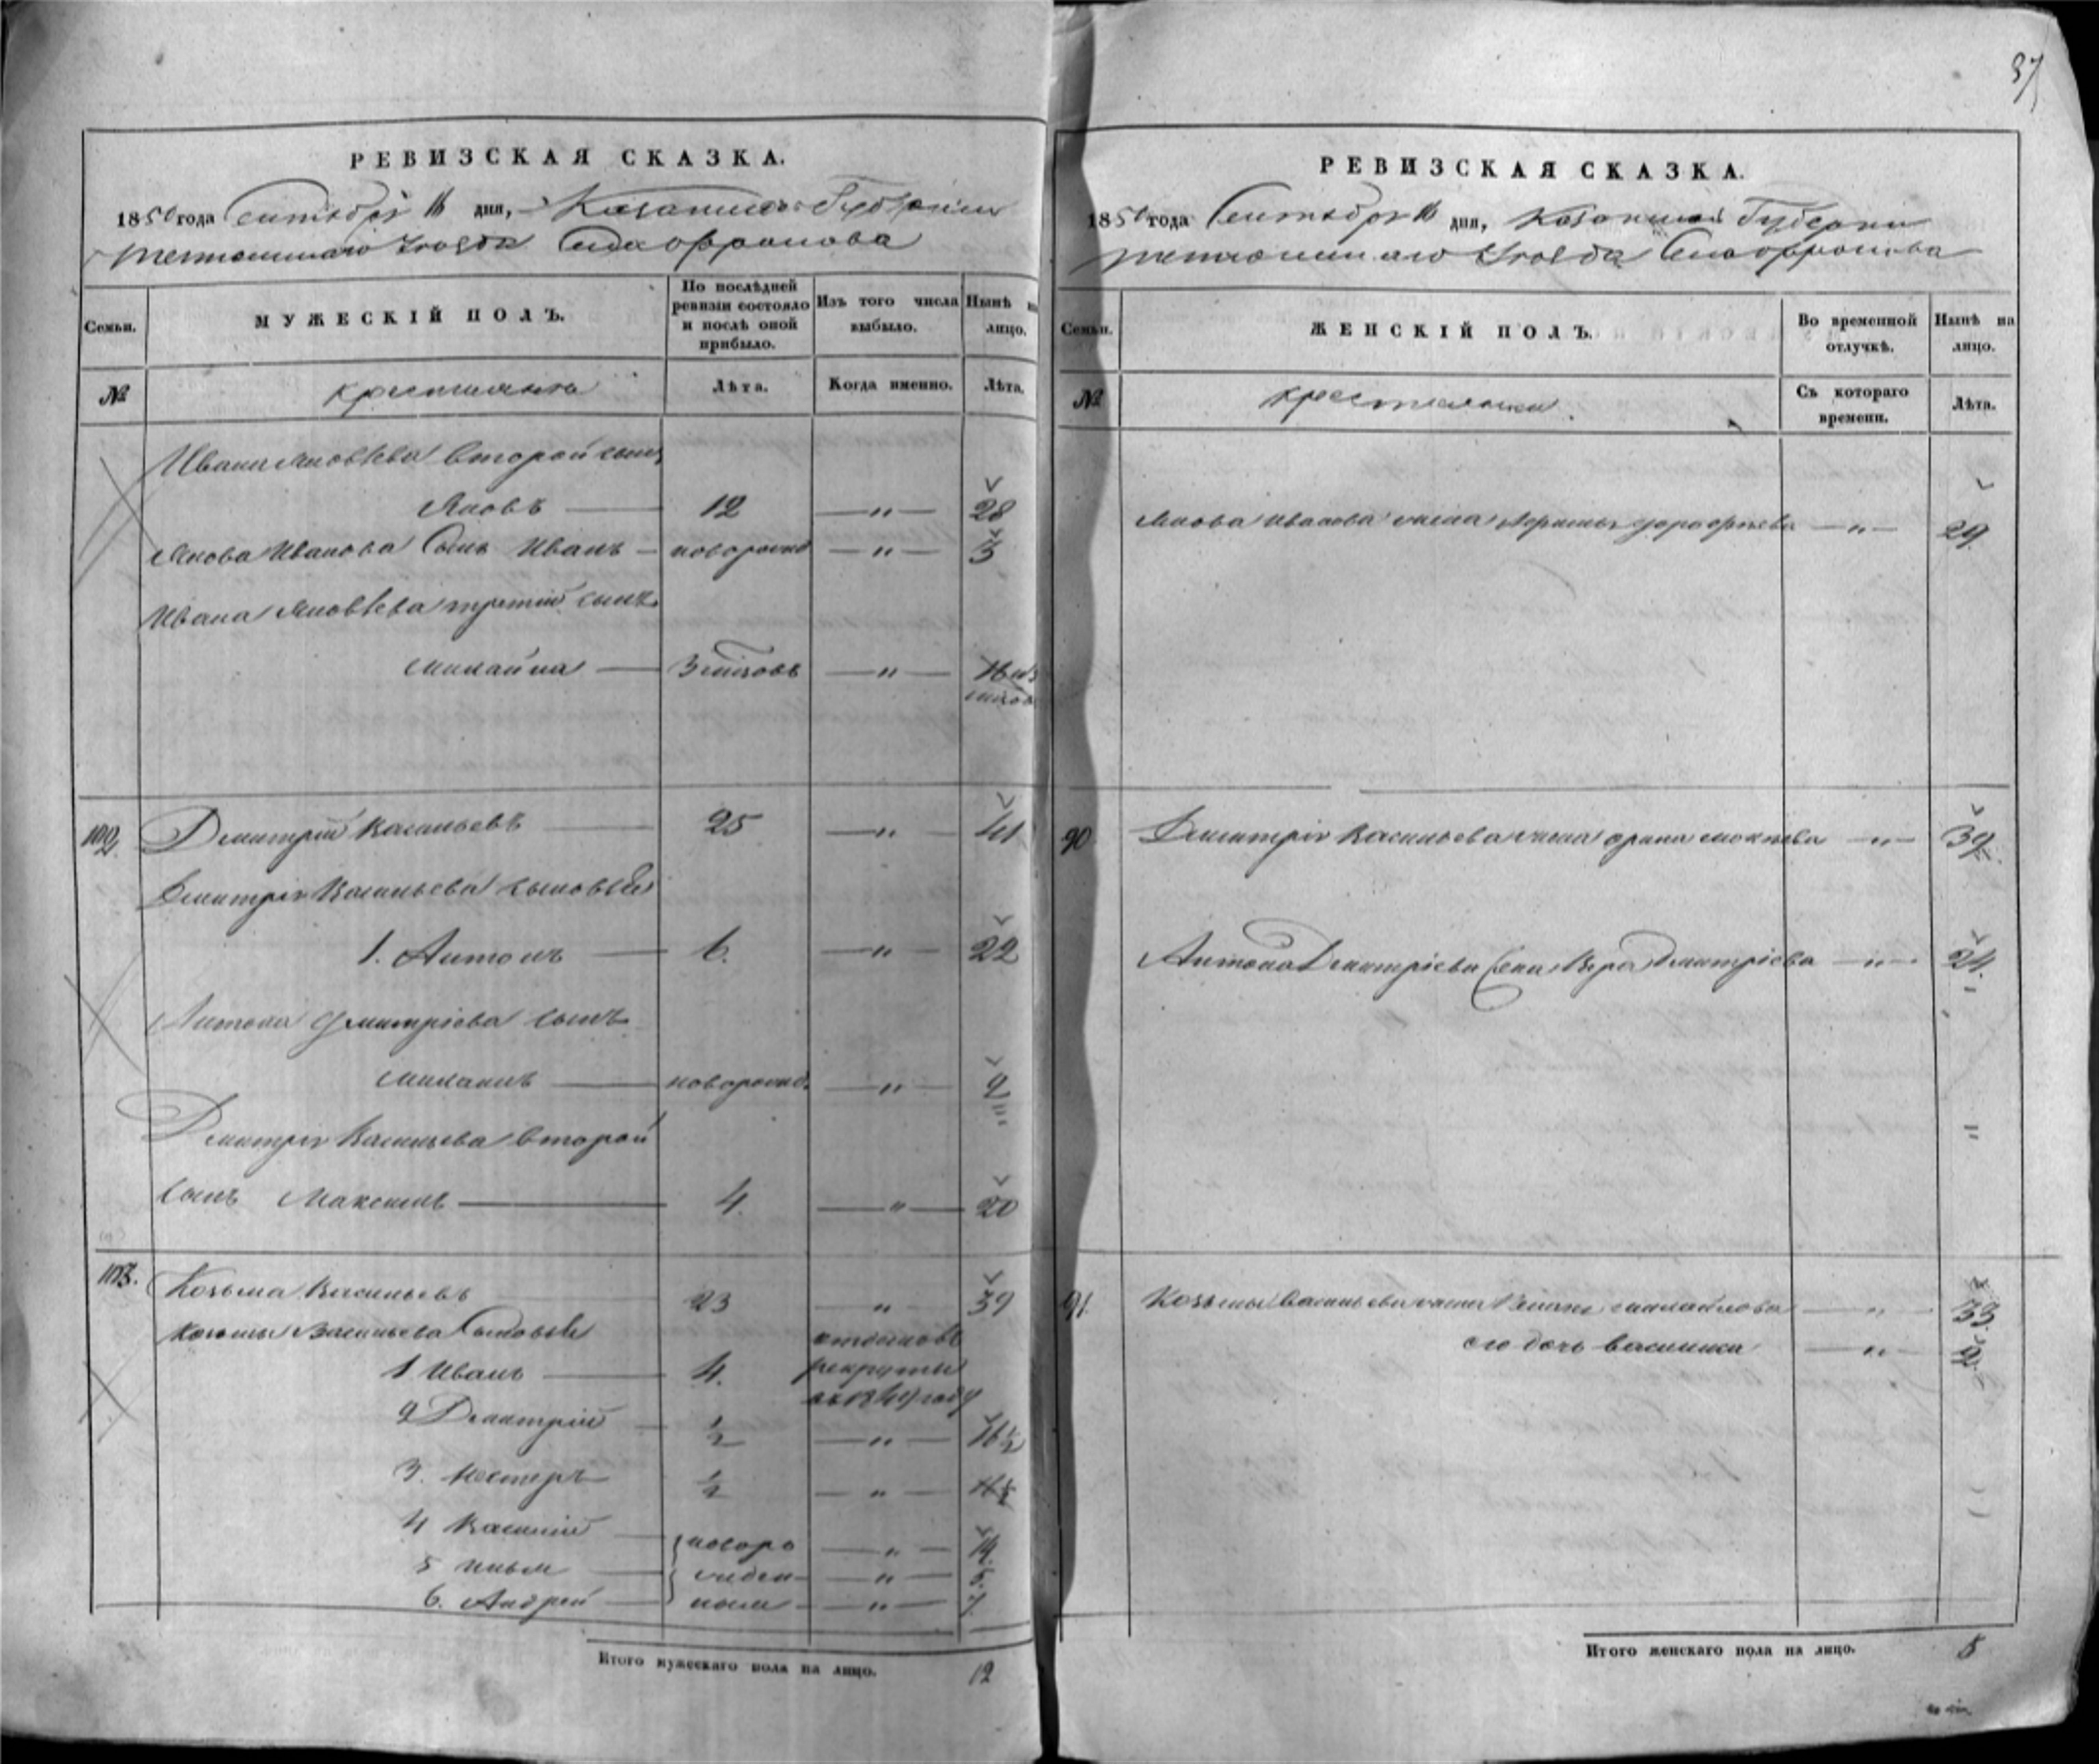 37
РЕВИЗСКАЯ СКАЗКА.
1850 года Сентября 16 дня, Казанской Губернии
Тетюшскаго Уезда Села
МУЖЕСКІЙ ПОЛЪ.
Семьи.
По послѣдней ревизіи состояло и послѣ оной прибыло.
Изъ того числа выбыло.
Нынѣ на лицо.
№
крестьяне
Лѣта.
Когда именно.
Лѣта.
Ивана Яковлева второй сынъ
Яковъ — 12 — „ — 28
Якова Иванова Сынъ Иванъ — новорожд — „ — 3
Ивана Яковлева третій сынъ
Михайла — „ —
102 Дмитрій Васильевъ — 25 — „ — 41
Дмитрія Васильева сыновья
1. Антонъ — 6. — „ — 22
Антона Дмитріева сынъ
— новорожд. — „ — 2
Дмитрія Васильева второй
сынъ Максимъ — 4. — „ — 20
103. Козьма Васильевъ — 23 — „ — 39
Козьмы Васильева Сыновья
1 Иванъ — 4. рекруты
2 Дмитрій — 1/2 — „ — 16 1/2
3. Нестеръ — 1/2 — „ — 16 1/2
4 Василій — новоро — „ — 14.
5 — жден — „ —
6. Андрей — ные — „ —
Итого мужескаго пола на лицо. 12
РЕВИЗСКАЯ СКАЗКА.
1850 года Сентября 16 дня, Казанской Губерни
Тетюшскаго Уезда Села
Семьи.
ЖЕНСКІЙ ПОЛЪ.
Во временной отлучкѣ.
Нынѣ на лицо.
№
крестьянки.
Съ котораго времени.
Лѣта.
Якова Иванова жена — „ — 29.
90 Дмитрія Васильева жена — „ — 39.
Антона Дмитріева жена Вера Дмитріева — „ — 24.
91. Козьмы Васильева жена Михайлова — „ — 33.
его дочь — „ — 2.
Итого женскаго пола на лицо. 5